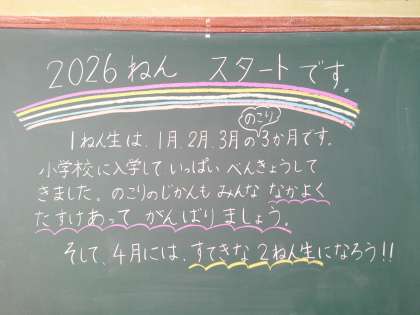 2026ねん スタートです。
のこり
1ねん生は、1月、2月、3月の3か月です。
小学校に入学して いっぱい べんきょうして
きました。のこりのじかんも みんな なかよく
たすけあって がんばりましょう。
そして、4月には、すてきな 2ねん生になろう!!